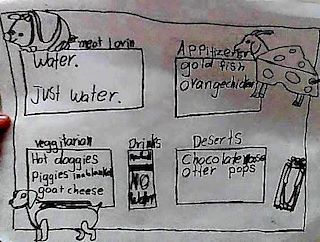 meat lovin
Water.
Just water.
Appitzers
gold fish
orangechicken
veggitarian
Hot doggies
Piggies in a blanket
goat cheese
Drinks
NO
water
Deserts
Chocolate
otter pops